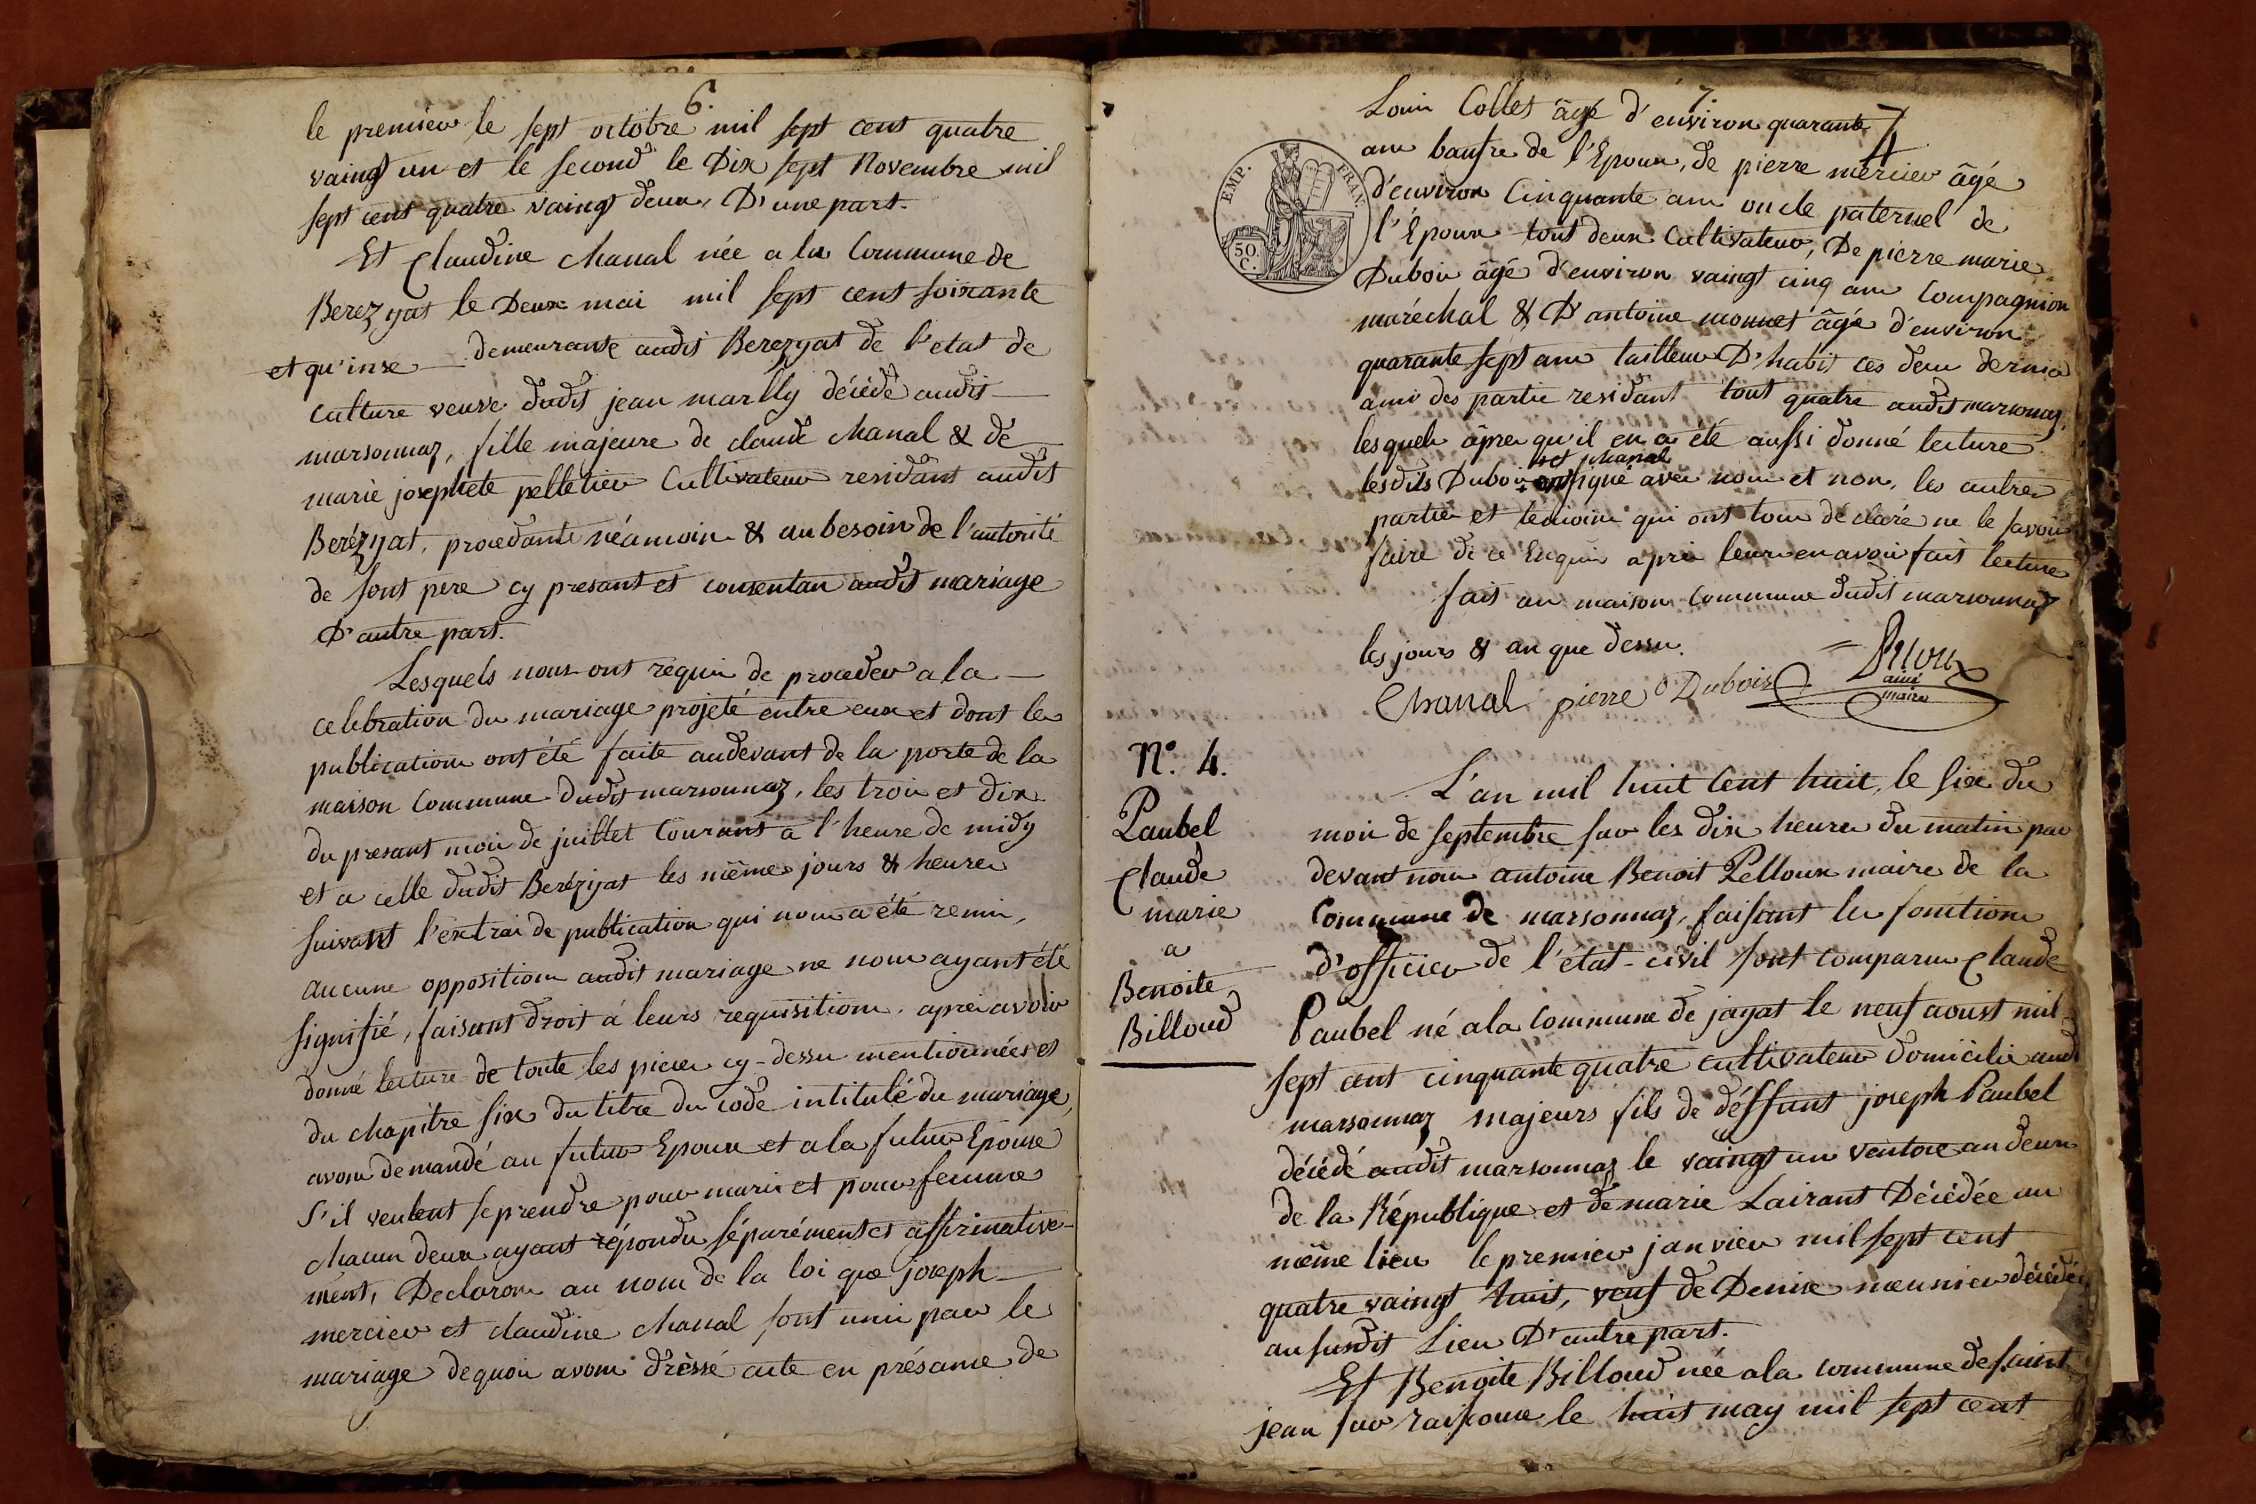 6.
le premier le sept octobre mil sept cent quatre
vaingt un et le second le Dix sept Novembre mil
sept cent quatre vaingt deux, D'une part.
Et Claudine Chanal née a la Commune de
Berezyat le Deux mai mil sept cent soixante
et qu'inse demeurante audit Berezyat de l'etat de
culture veuve dudit jean marlly décédé audit
marsonnaz, fille majeure de claude chanal & de
marie josephete pelletier Cultivateur residant audit
Berézyat, procedante néamoin & au besoin de l'autorité
de sont pere cy presant et consentan audit mariage
D'autre part.
Lesquels nous ont requin de proceder a la
celebration du mariage projeté entre eux et dont les
publication ont été faite audevant de la porte de la
maison Commune dudit marsonnaz, les troi et dix
du presant moi de juillet Courant a l'heure de midy
et a celle dudit Berézyat les même jours & heure
suivant l'extrai de publication qui nous a été remi,
aucune opposition audit mariage ne nous ayant été
signifié, faisant droit á leurs requisition, aprè avoir
donné lecture de toute les piece cy-dessu mentionnées et
du chapitre six du titre du code intitulé du mariage,
avon demandé au futur Epoux et a la futur Epouse
s'il veulent se prendre pour mari et pour femme
chacun deux ayant répondu séparément et affirmative-
ment, Declaron au nom de la loi que joseph
mercier et claudine chanal sont uni par le
mariage de quoi avon drèssé acte en présance de
7.
7
Loui Colles âgé d'environ quarante
an baufre de l'Epoux, de pierre mercier âgé
d'environ Cinquante an oncle paternel de
l'Époux tout deux Cultivateur, De pierre marie
Duboi âgé d'environ vaingt cinq an Compagnion
maréchal & D'antoine monnet âgé d'environ
quarante sept an tailleur D'habit ces deu dernie
ami des partie residant tout quatre audit marsonnaz,
lesquels âpre qu'il en a été aussi donné lecture
et chanal
lesdits Duboi ont signé avec nou et non, les autre
partie et temoin qui ont tou declaré ne le savoir
faire de ce Enqui aprè leur en avoir fait lecture
fait au maison Commune dudit marsonnaz
les jours & an que dessu.
Chanal pierre Dubois
ainé
maire
EMP. FRAN.
50.
C.
N.° 4.
Paubel
Claude
marie
a
Benoite
Billoud
L'an mil huit Cent huit, le six du
moi de septembre sur les dix heure du matin par
devant nou antoine Benoit Pelloux maire de la
Commune de marsonnaz, faisant les fonction
d'officier de l'état-civil sont comparu Claude
Paubel né a la Commune de jayat le neuf aoust mil
sept cent cinquante quatre cultivateur domicilié aud
marsonnaz majeurs fils de déffunt joseph Paubel
décédé audit marsonnaz le vaingt un ventose an deux
de la République et de marie Lairant Décédée au
même lieu le premier janvier mil sept cent
quatre vaingt huit, veuf de Denise meunier décédée
au susdit Lieu D'autre part.
Et Benoite Billoud née a la commune de saint
jean sur raisouse le huit may mil sept cent